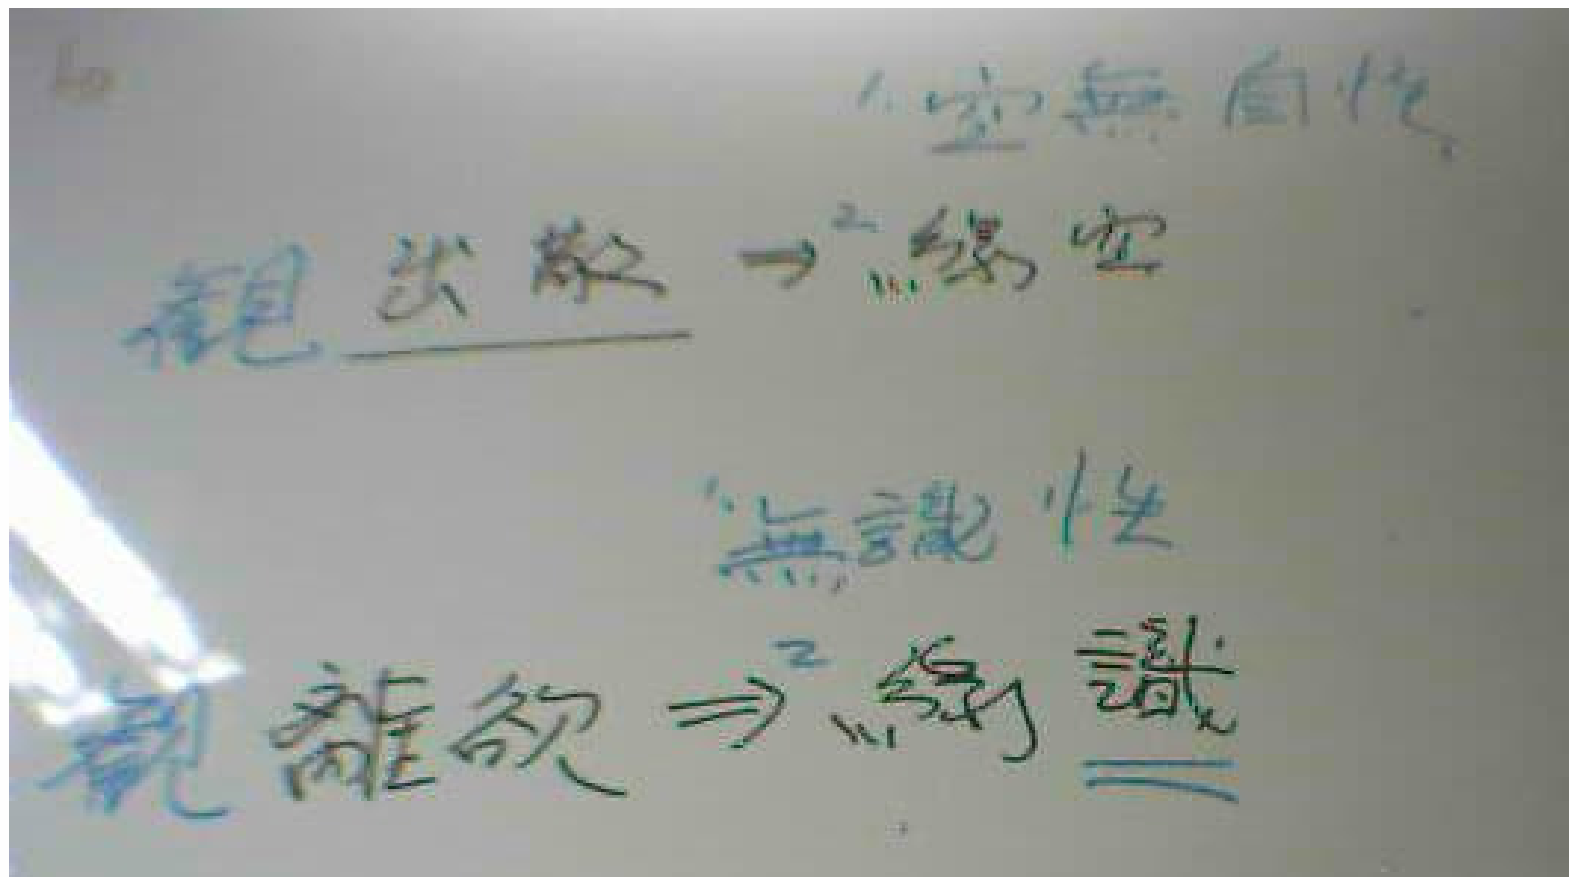 1. 空無自性
觀出散 → 2. 緣空
1. 無識性
觀離欲 ⇒ 2 緣識